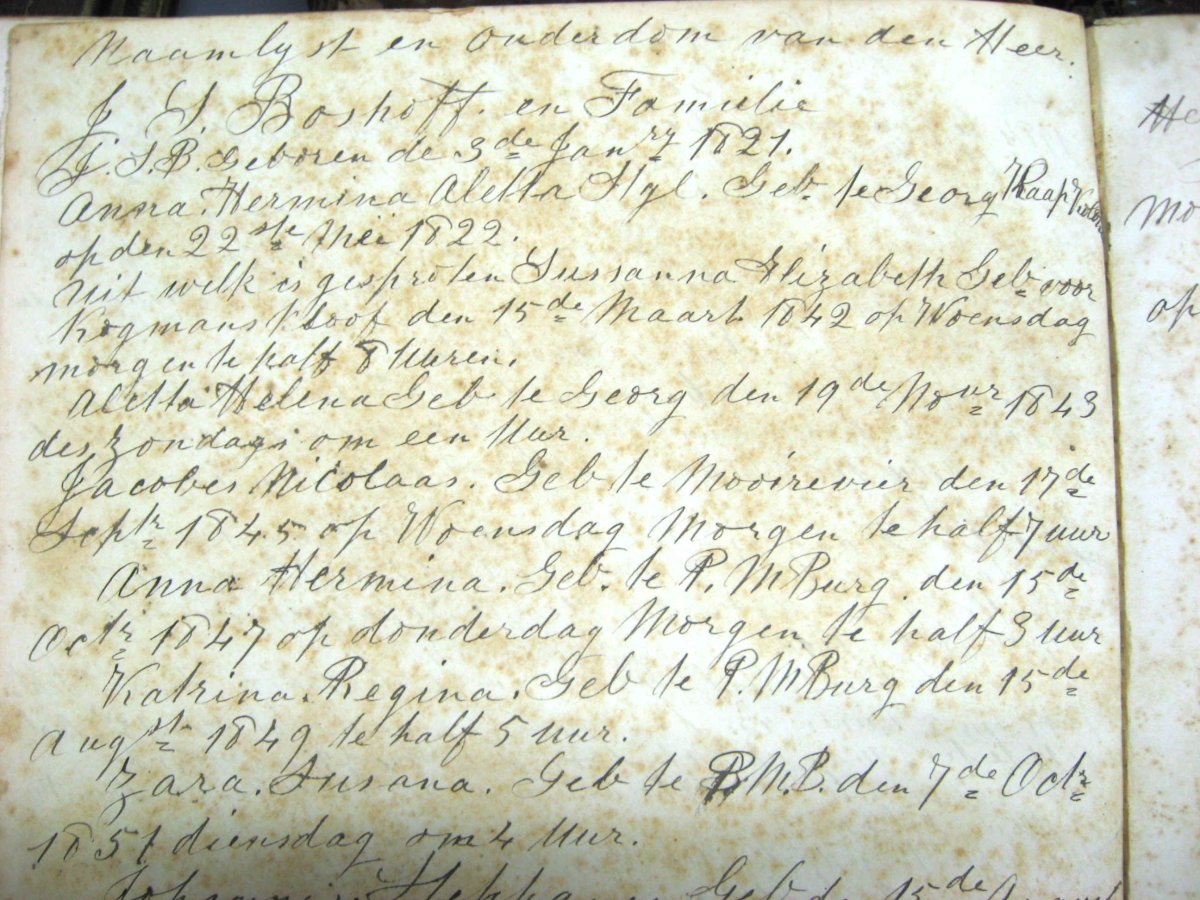 Naamlyst en ouderdom van den Heer.
J. S. Boshoff. en Familie
J. S. B. Geboren de 3de Janry 1821.
Anna. Hermina Aletta Nyl. Geb. te Georg Kaap Kolonie
op den 22ste Mei 1822.
uit welk is gesproten Sussanna Elizabeth Geb voor
Kogmans Kloof den 15de Maart 1842 op Woensdag
morgen te half 8 Uuren.
Aletta Helena Geb te Georg den 19de Novr 1843
des zondags om een Uur.
Jacobes Nicolaas. Geb te Mooirevier den 17de
Septr 1845 op Woensdag Morgen te half 7 uur
Anna Hermina. Geb. te P. M Burg. den 15de
Octr 1847 op donderdag Morgen te half 3 uur
Katrina. Regina. Geb te P. M Burg den 15de
Augst 1849 te half 5 Uur.
Zara. Susana. Geb te P. M. B. den 7de Octr
1851 diensdag om 4 Uur.
Geb te 15de
He
Mo
op